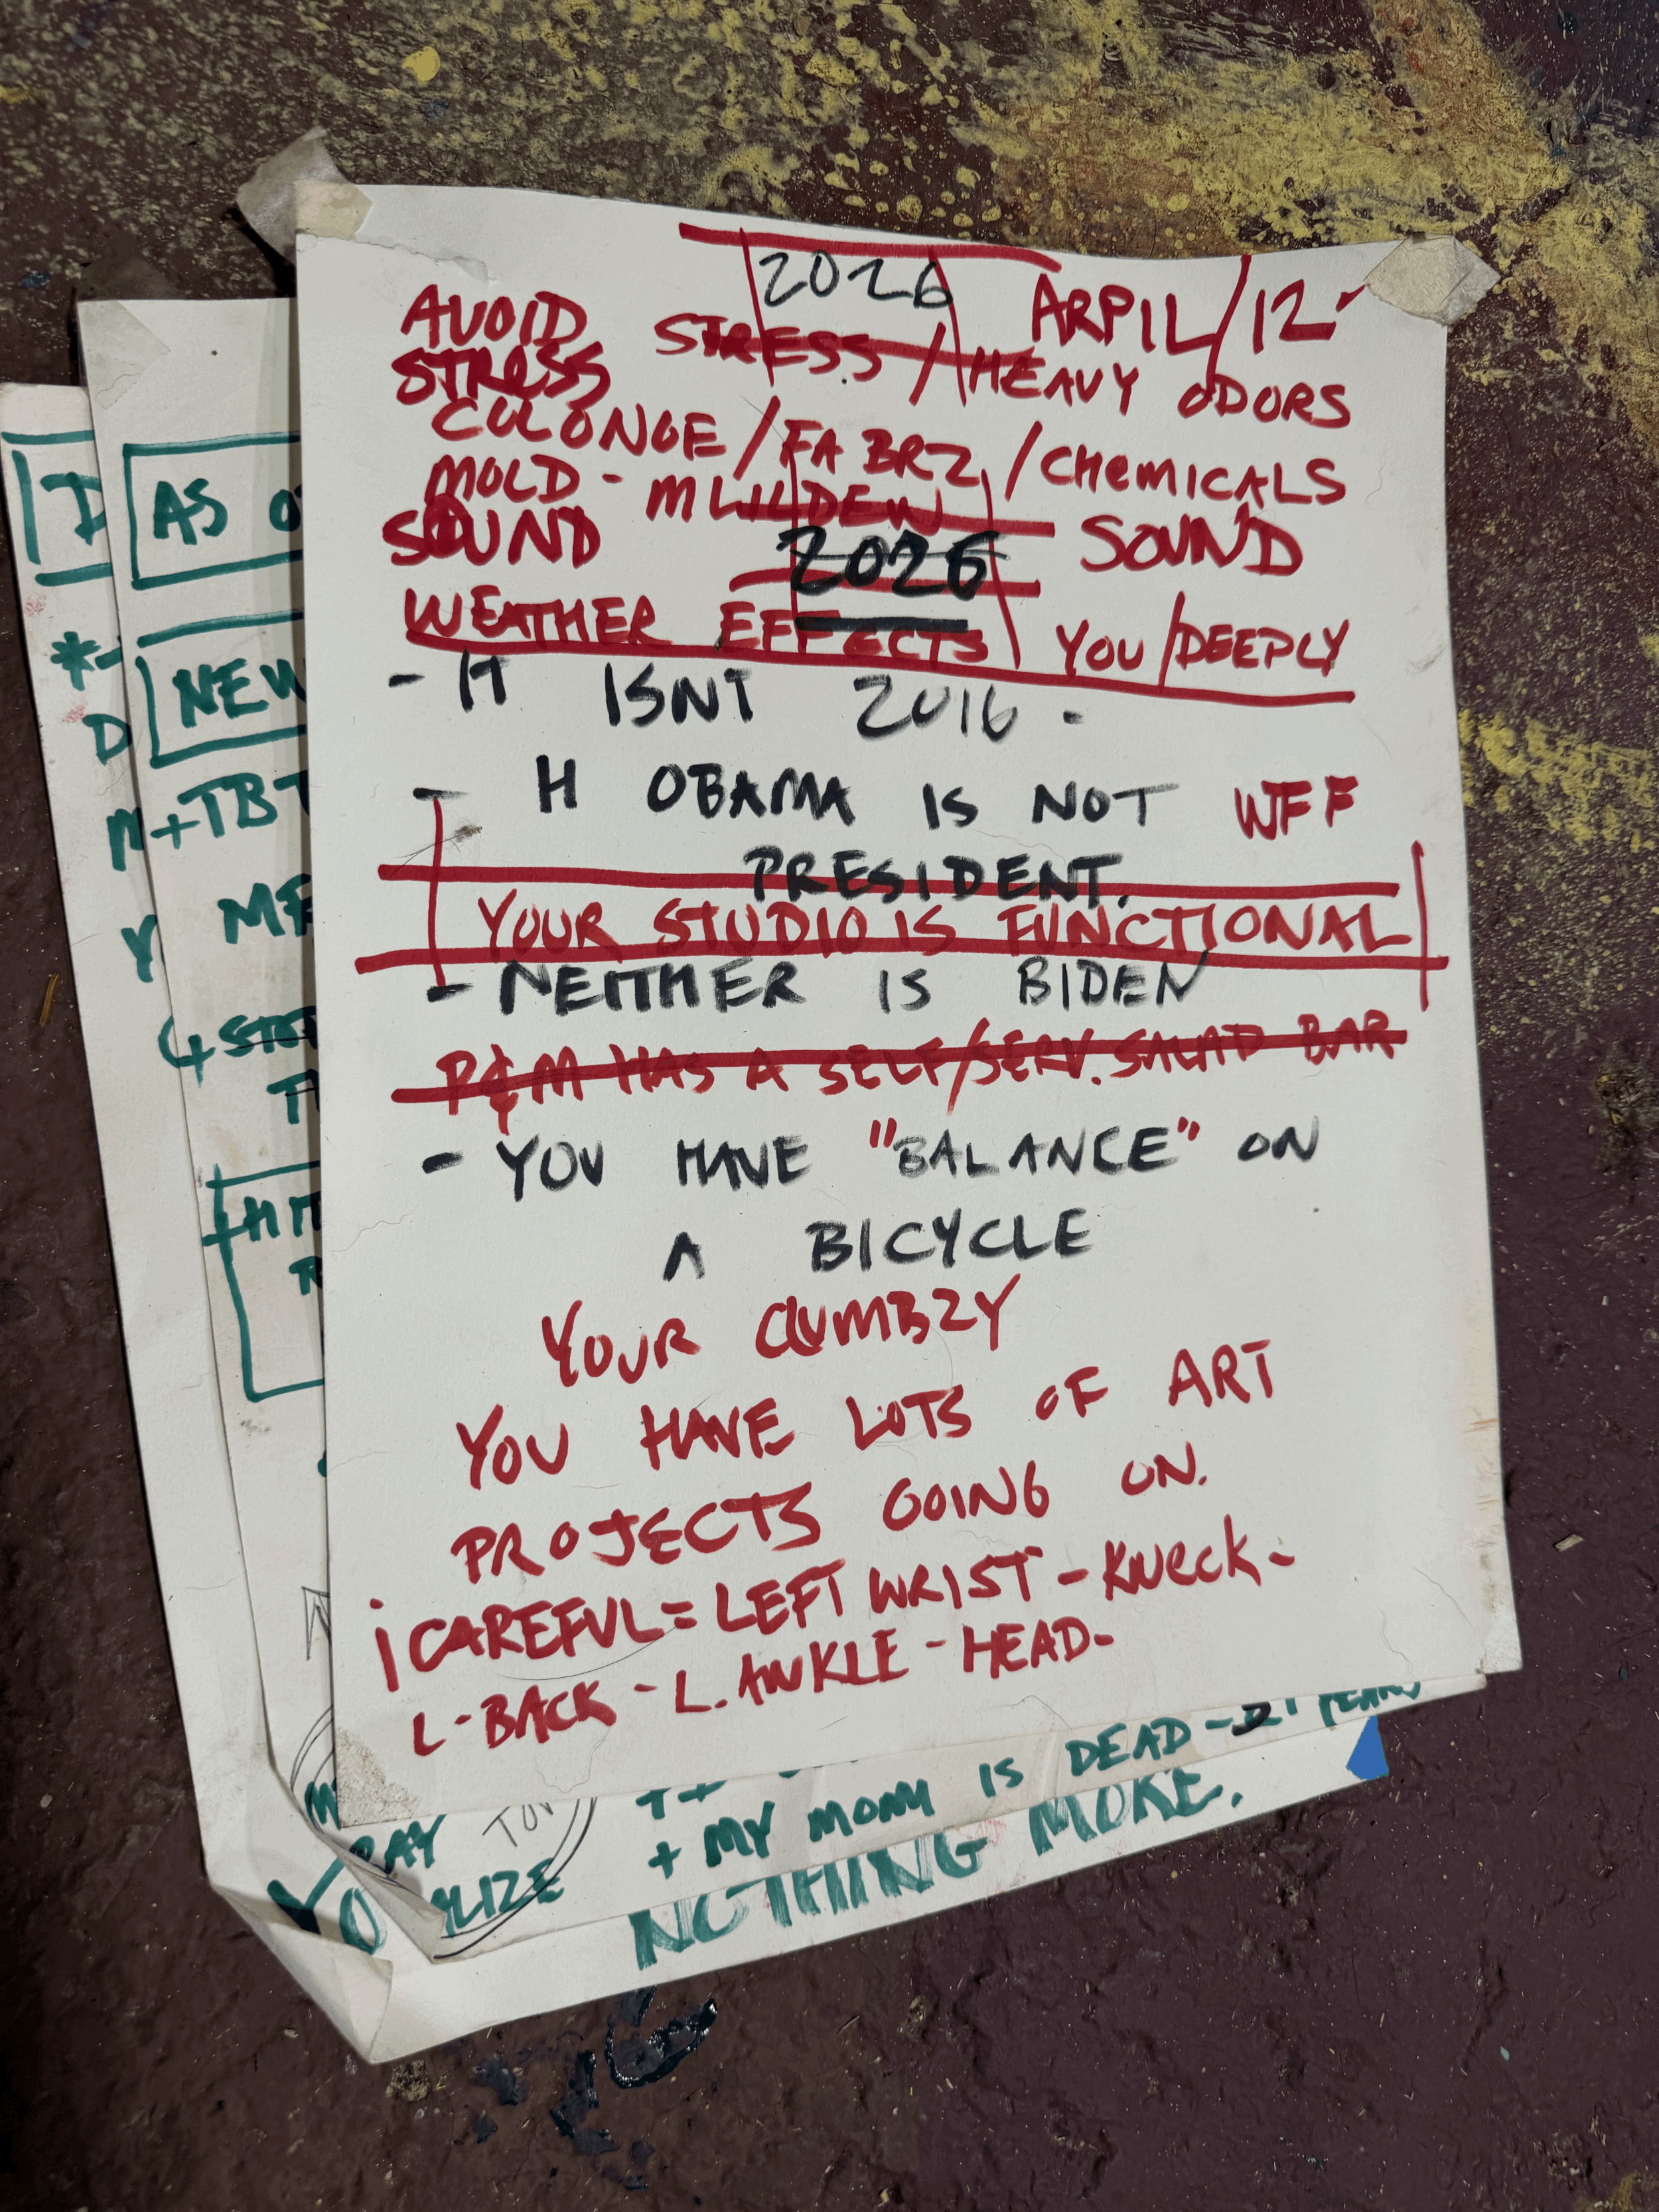 2026 ARPIL/12
AVOID
STRESS STRESS / HEAVY ODORS
COLONGE / FABRZ / CHEMICALS
MOLD - MLILDEW
SOUND 2026 SOUND
WEATHER EFFECTS YOU/DEEPLY
- IT ISNT 2016 -
- H OBAMA IS NOT WFF
PRESIDENT.
YOUR STUDIO IS FUNCTIONAL
- NEITHER IS BIDEN
P&M HAS A SELF/SERV. SALAD BAR
- YOU HAVE "BALANCE" ON
A BICYCLE
YOUR CLUMBZY
YOU HAVE LOTS OF ART
PROJECTS GOING ON.
¡CAREFUL = LEFT WRIST - KNECK -
L-BACK - L. ANKLE - HEAD -
AS O
NEW
+TBT
+ MY MOM IS DEAD - 21 YEARS
NOTHING MORE.